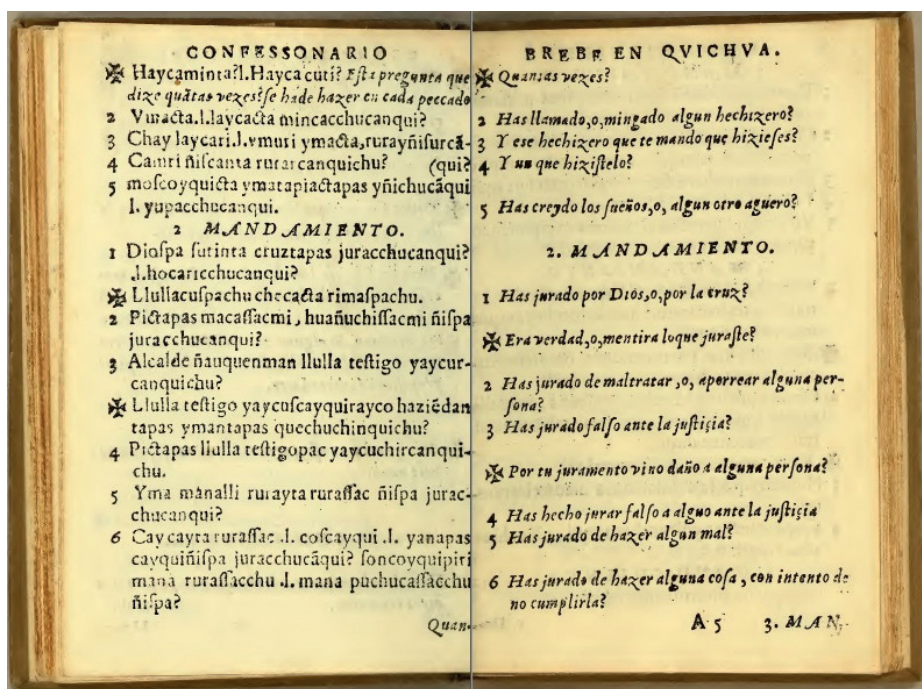 CONFESSONARIO
✠ Haycaminta?l.Hayca cuti? Esta pregunta que
dize quãtas vezes?se hade hazer en cada peccado
2 Vmacta.l.laycacta mincacchucanqui?
3 Chay laycari.l.vmuri ymacta,rurayñisurcã-
4 Camri ñiscanta rurarcanquichu? (qui?
5 moscoyquicta ymatapiactapas yñichucãqui
l. yupacchucanqui.
2 MANDAMIENTO.
1 Diospa sutinta cruztapas juracchucanqui?
.l.hocaricchucanqui?
✠ Llullacuspachu checacta rimaspachu.
2 Pictapas macassacmi, huañuchissacmi ñispa
juracchucanqui?
3 Alcalde ñauquenman llulla testigo yaycur-
canquichu?
✠ Llulla testigo yaycuscayquirayco haziẽdan
tapas ymantapas quechuchinquichu?
4 Pictapas llulla testigopac yaycuchircanqui-
chu.
5 Yma manalli rurayta rurassac ñispa jurac-
chucanqui?
6 Cay cayta rurassac .l. coscayqui .l. yanapas
cayquiñispa juracchucãqui? soncoyquipiri
mana rurassacchu .l. mana puchucassacchu
ñispa?
Quan-
BREBE EN QVICHVA.
✠ Quantas vezes?
2 Has llamado,o,mingado algun hechizero?
3 Y ese hechizero que te mando que hizieses?
4 Y que hizistelo?
5 Has creydo los sueños,o, algun otro aguero?
2. MANDAMIENTO.
1 Has jurado por Dios,o,por la cruz?
✠ Era verdad,o,mentira loque juraste?
2 Has jurado de maltratar ,o, aporrear alguna per-
sona?
3 Has jurado falso ante la justicia?
✠ Por tu juramento vino daño a alguna persona?
4 Has hecho jurar falso a alguo ante la justiçia
5 Has jurado de hazer algun mal?
6 Has jurado de hazer alguna cosa , con intento de
no cumplirla?
A 5 3. MAN-